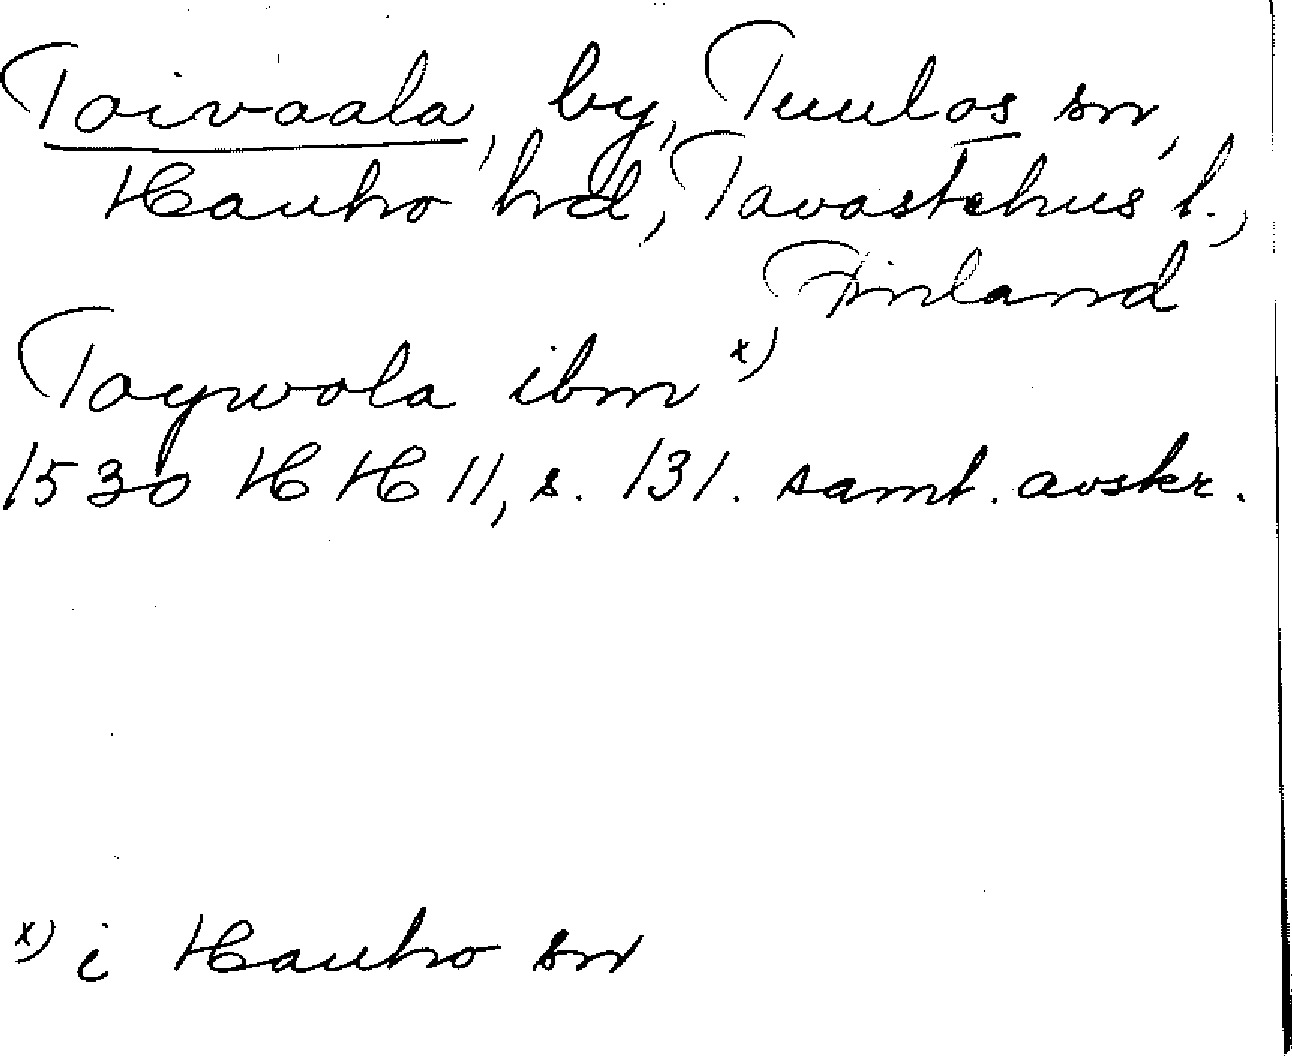 Toivaala, by, Tuulos sn,
Hauho hd, Tavastehus l.,
Finland
Toywola ibm x)
1530 HH 11, s. 131. samt. avskr.
x) i Hauho sn